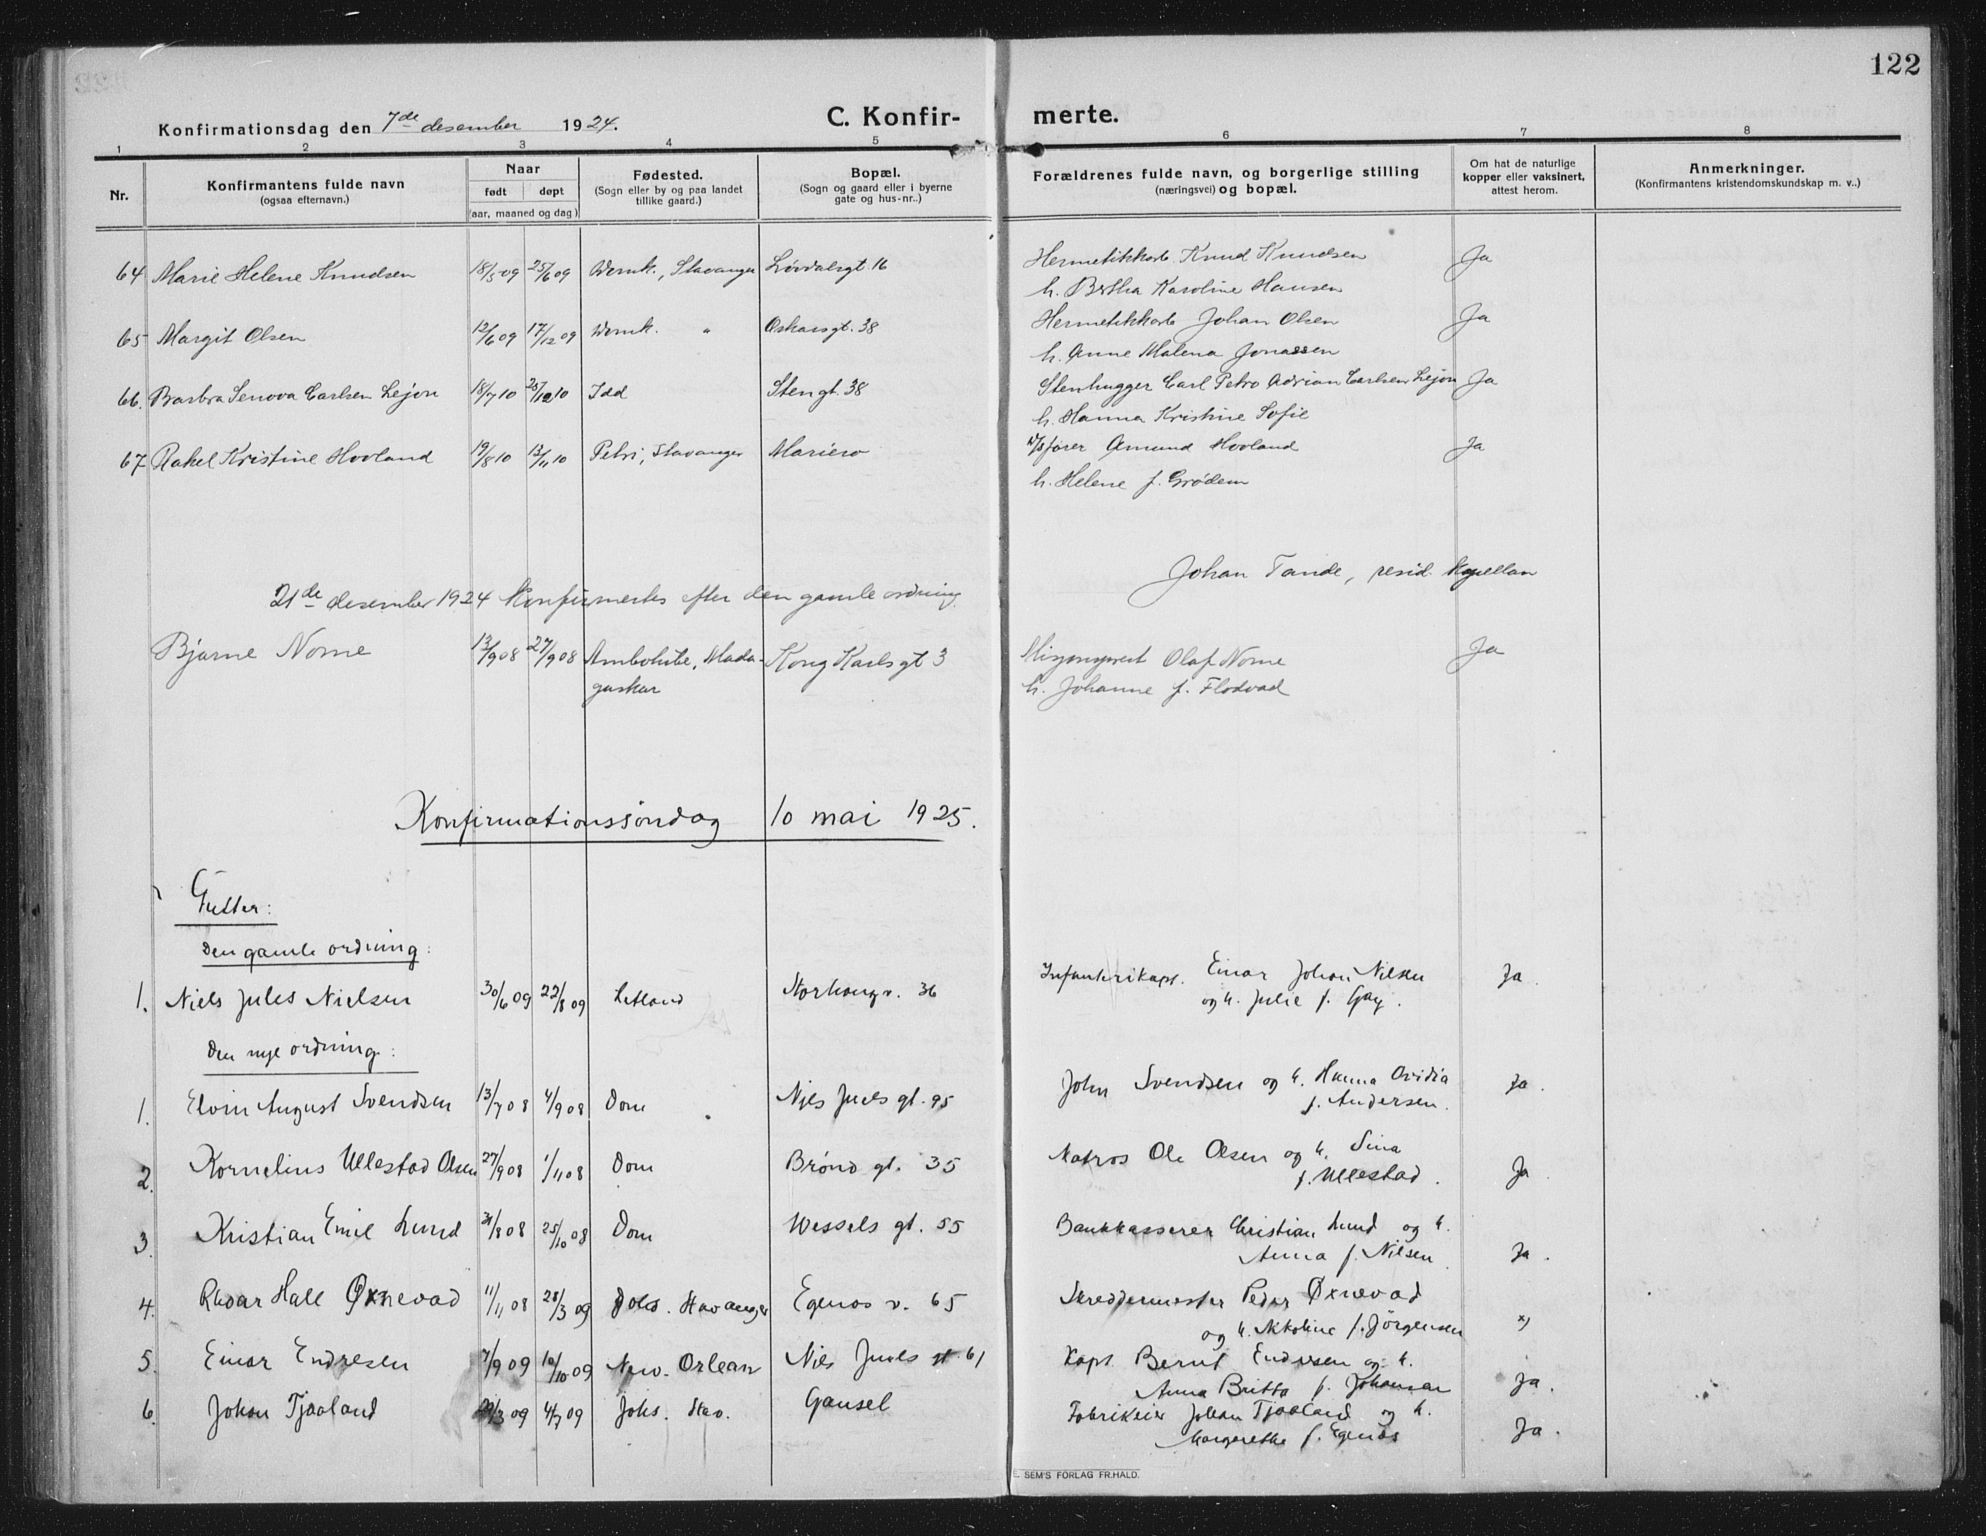 122
Konfirmationsdag den 7de desember 1924.
C. Konfirmerte.
1 2 3 4 5 6 7 8
Nr.
Konfirmantens fulde navn
(ogsaa efternavn.)
Naar
født døpt
(aar, maaned og dag)
Fødested.
(Sogn eller by og paa landet
tillike gaard.)
Bopæl.
(Sogn og gaard eller i byerne
gate og hus-nr..)
Forældrenes fulde navn, og borgerlige stilling
(næringsvei) og bopæl.
Om hat de naturlige
kopper eller vaksinert,
attest herom.
Anmerkninger.
(Konfirmantens kristendomskundskap m. v..)
64 Marie Helene Knudsen 18/5 09 25/6 09 Domk., Stavanger Lövdalsgt. 16 Hermetikkarb. Knud Knudsen Ja
h. Bertha Karoline Hansen
65 Margit Olsen 12/6 09 17/12 09 Domk. " Oskarsgt. 38 Hermetikkarb Johan Olsen Ja
h. Anne Malena Jonassen
66. Barbra Senova Carlsen Lejon 18/7 10 25/12 10 Idd Stengt. 38 Stenhugger Carl Petro Adrian Carlsen Lejon Ja
h. Hanna Kristine Sofie
67 Rakel Kristine Hovland 19/8 10 13/11 10 Petri, Stavanger Mariero D/S fører Amund Hovland Ja
h. Helene f. Grödem
Johan Tande, resid. kapellan
21de desember 1924 Konfirmertes efter den gamle ordning
Bjarne Nome 13/9 08 27/9 08 Ambohibe, Mada- Kong Karlsgt 3 Misjonsprest Olaf Nome Ja
gaskar h. Johanne f. Flodvad
Konfirmationssöndag 10 mai 1925.
Gutter:
Den gamle ordning:
1. Niels Jules Nielsen 30/6 09 22/8 09 Hetland Storhaugv. 36 Infanterikapt. Einar Johan Nilsen Ja
og h. Julie f. Gay.
Den nye ordning:
1. Elvin August Svendsen 13/7 08 4/9 08 Dom Njels Juels gt. 95 John Svendsen og h. Hanna Ovidia Ja.
f. Andersen.
2. Kornelius Ullestad Olsen 27/9 08 1/11 08 Dom Brönd gt. 35 Matros Ole Olsen og h. Sina
f. Ullestad. Ja
3. Kristian Emil Lund 31/8 08 25/10 08 Dom Wessels gt. 55 Bankkasserer Christian Lund og h.
Anna f. Nilsen. Ja.
4. Roar Hall Øxnevad 11/11 08 28/3 09 Johs. Stavanger Egenes v. 65 Skreddermester Peder Øxnevad
og h. f. Jörgensen x)
5. Einar Endresen 7/9 09 10/10 09 New. Orlean Niels Juels gt. 61 Kapt. Bernt Endresen og h.
Anna Britta f. Johansen Ja.
6. Johan Tjaaland /3 09 4/7 09 Johs. Stav. Gausel Fabrikeier Johan Tjaaland og h.
Margrethe f. Egenes Ja.
E. SEM'S FORLAG FR.HALD.